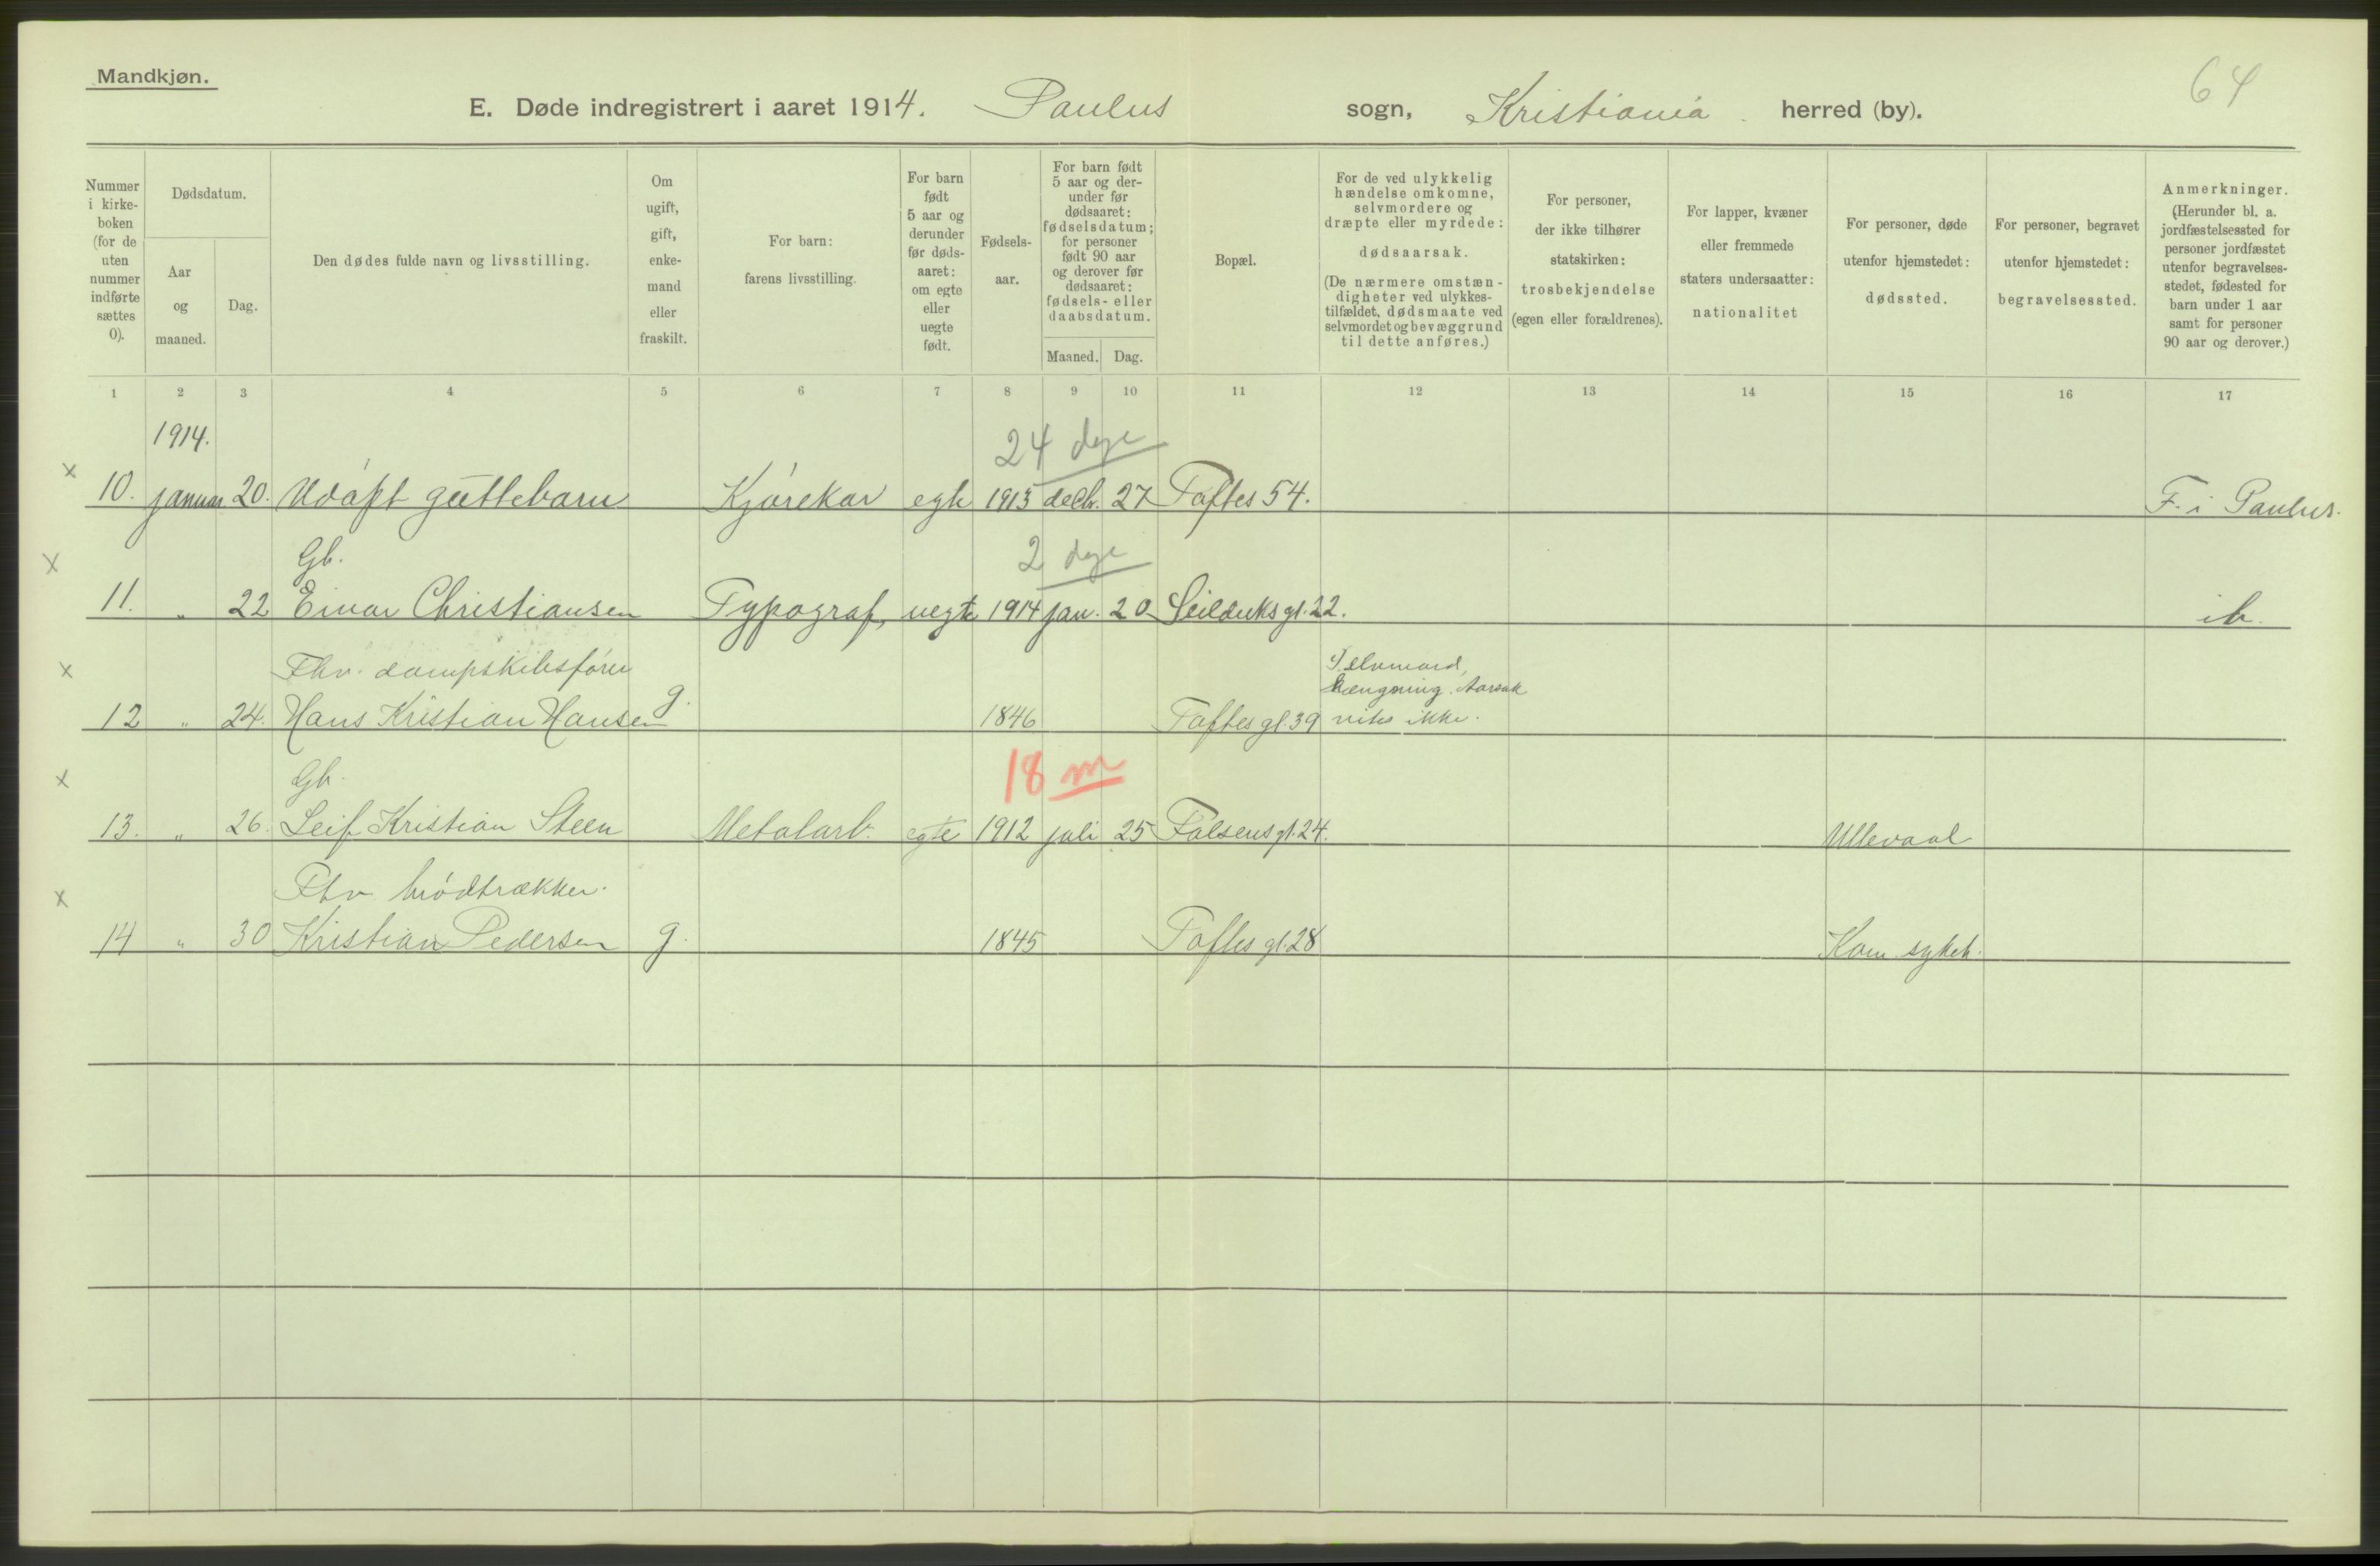 Mandkjøn.
64
E. Døde indregistrert i aaret 1914. Paulus sogn, Kristiania herred (by).
Nummer i kirkeboken (for de uten nummer indførte sættes 0).
Dødsdatum.
Aar og maaned.
Dag.
Den dødes fulde navn og livsstilling.
Om ugift, gift, enkemand eller fraskilt.
For barn: farens livsstilling.
For barn født 5 aar og derunder før dødsaaret: om egte eller uegte født.
Fødselsaar.
For barn født 5 aar og derunder før dødsaaret: fødselsdatum; for personer født 90 aar og derover før dødsaaret: fødsels- eller daabsdatum.
Maaned. Dag.
Bopæl.
For de ved ulykkelig hændelse omkomne, selvmordere og dræpte eller myrdede: dødsaarsak. (De nærmere omstændigheter ved ulykkestilfældet, dødsmaate ved selvmordet og bevæggrund til dette anføres.)
For personer, der ikke tilhører statskirken: trosbekjendelse (egen eller forældrenes).
For lapper, kvæner eller fremmede staters undersaatter: nationalitet
For personer, døde utenfor hjemstedet: dødssted.
For personer, begravet utenfor hjemstedet: begravelsessted.
Anmerkninger. (Herunder bl. a. jordfæstelsessted for personer jordfæstet utenfor begravelsesstedet, fødested for barn under 1 aar samt for personer 90 aar og derover.)
1 2 3 4 5 6 7 8 9 10 11 12 13 14 15 16 17
1914.
24 dage
x 10. januar 20. Udøpt guttebarn Kjørekar egte 1913 decbr. 27 Toftes 54. F. i Paulus.
Gb. 2 dage
x 11. " 22 Einar Christiansen Typograf, uegte 1914 jan. 20 Seilduksgt. 22. ib.
Fhv. dampskibsfører Selvmord,
hængning. Aarsak
x 12 " 24. Hans Kristian Hansen g. 1846 Toftesgt. 39 vites ikke.
Gb. 18 m
x 13. " 26. Leif Kristian Steen Metalarb. egte 1912 juli 25 Falsensgt. 24. Ullevaal
Fhv. brødtrækker.
x 14 " 30 Kristian Pedersen g. 1845 Toftes gt. 28 Kom. sykeh.